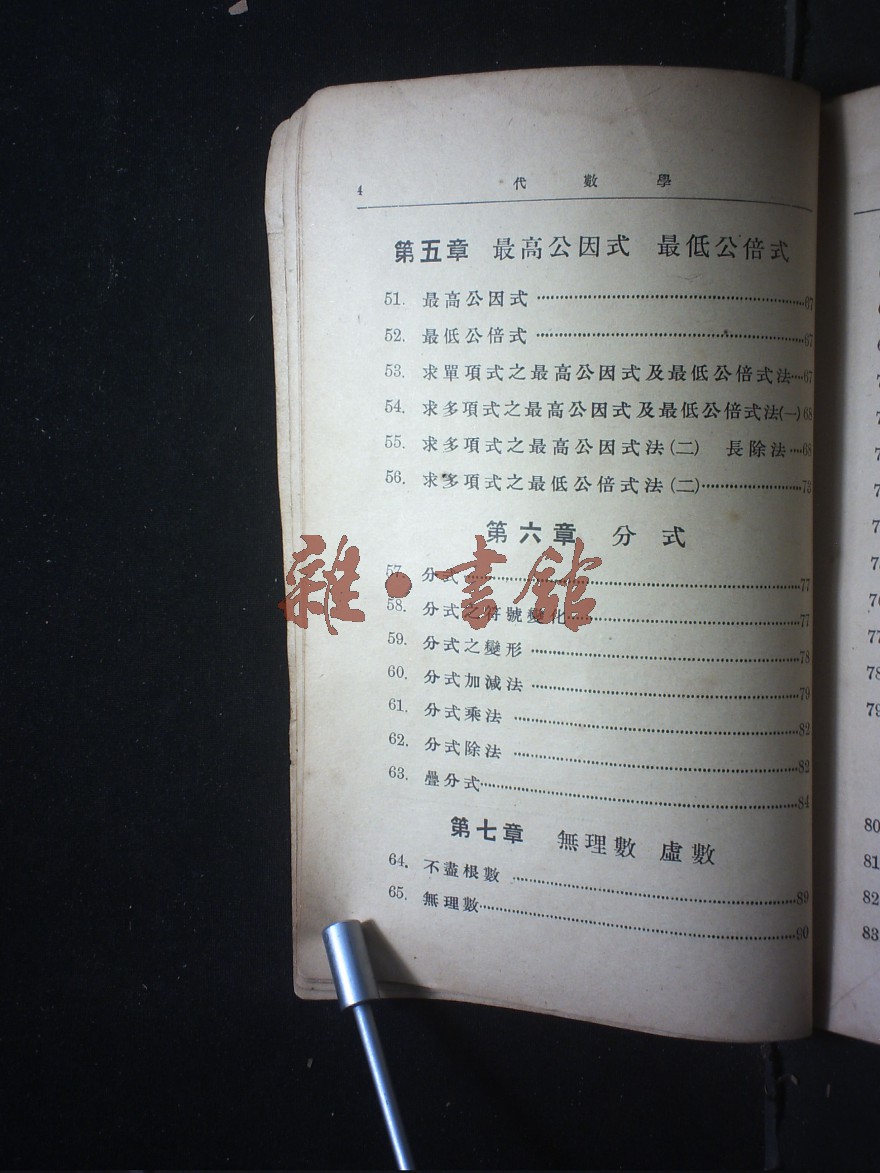 4 代數學
第五章 最高公因式 最低公倍式
51. 最高公因式 ……67
52. 最低公倍式 ……67
53. 求單項式之最高公因式及最低公倍式法……67
54. 求多項式之最高公因式及最低公倍式法(一) 68
55. 求多項式之最高公因式法(二) 長除法……68
56. 求多項式之最低公倍式法(二)……73
第六章 分式
57. 分式……77
58. 分式之符號變化……77
59. 分式之變形……78
60. 分式加減法……79
61. 分式乘法……82
62. 分式除法……82
63. 疊分式……84
第七章 無理數 虛數
64. 不盡根數……89
65. 無理數……90
雜·書館
79
80
81
82
83